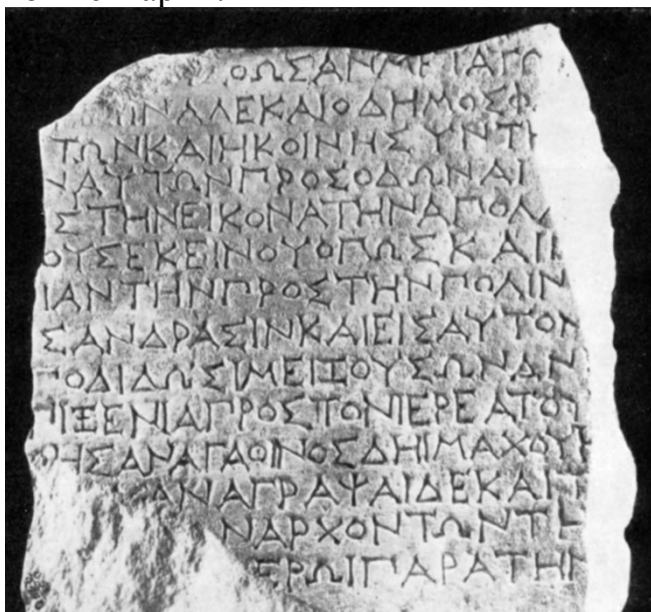 ΘΩΣΑΝΜΕΓΑΓΩ
ΝΑΛΕΚΑΙΟΔΗΜΟΣΦ
ΤΩΝΚΑΙΗΚΟΙΝΗΣΥΝΤ
ΝΑΥΤΩΝΠΡΟΣΟΔΩΝΑΙ
ΣΤΗΝΕΙΚΟΝΑΤΗΝΑΠΟΛ
ΟΥΣΕΚΕΙΝΟΥΟΠΩΣΚΑΙ
ΙΑΝΤΗΝΠΡΟΣΤΗΝΠΟΛΙΝ
ΣΑΝΔΡΑΣΙΝΚΑΙΕΙΣΑΥΤΟ
ΠΟΔΙΔΩΣΙΜΕΙΖΟΥΣΩΝΑΝ
ΞΕΝΙΑΠΡΟΣΤΟΝΙΕΡΕΑΤΟ
ΗΣΑΝΑΓΑΘΙΝΟΣΔΗΙΜΑΧΟΥ
ΑΝΑΓΡΑΨΑΙΔΕΚΑΙ
ΝΑΡΧΟΝΤΩΝΤ
ΕΡΩΙΠΑΡΑΤΗΝ